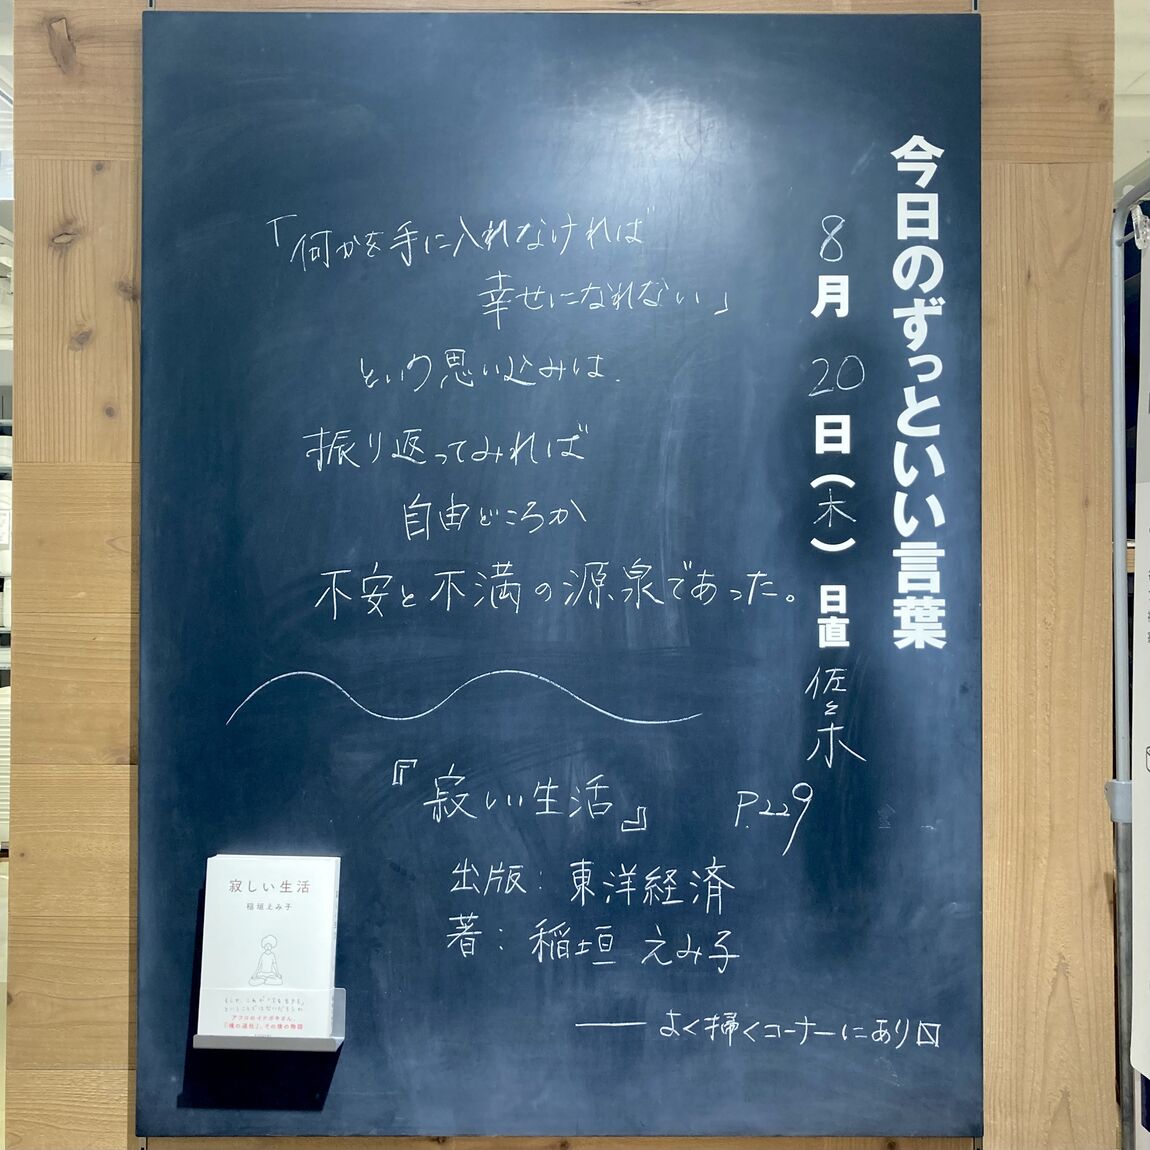 今日のずっといい言葉
8月20日(木) 日直 佐々木
「何かを手に入れなければ
幸せになれない」
という思い込みは、
振り返ってみれば
自由どころか
不安と不満の源泉であった。
『寂しい生活』 P.229
出版：東洋経済
著：稲垣 えみ子
よく掃くコーナーにあり〼
寂しい生活
稲垣えみ子
アフロのイナガキさん、
「魂の退社」、その後の物語